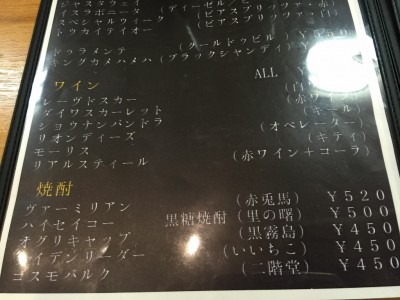 ジャスタウェイ
スペシャルウィーク (ピアスプリッツァー
トウカイテイオー
ドゥラメンテ (クールドゥビル
キングカメハメハ (ブラックシャンディ)
ワイン ALL ¥
レーヴドスカー
ダイワスカーレット (赤
ショウナンパンドラ (キール
リオンディーズ (オペレーター)
モーリス (キティ)
リアルスティール (赤ワイン+コーラ)
焼酎
ヴァーミリアン (赤兎馬) ¥520
ハイセイコー 黒糖焼酎 (里の曙) ¥500
オグリキャップ (黒霧島) ¥450
メイセイリーダー (いいちこ) ¥450
コスモバルク (二階堂) ¥450